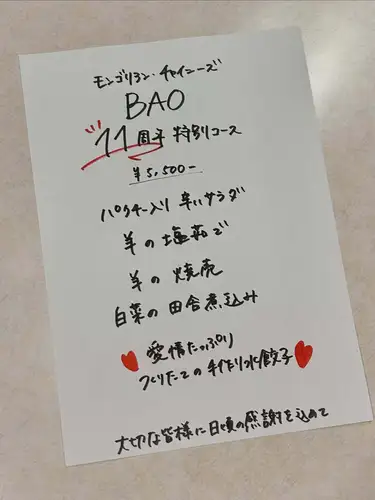 モンゴリアン・チャイニーズ
BAO
11周年 特別コース
¥5,500-
パクチー入り 辛いサラダ
羊の塩茹で
羊の焼売
白菜の田舎煮込み
愛情たっぷり
つくりたての手作り水餃子
大切な皆様に日頃の感謝を込めて